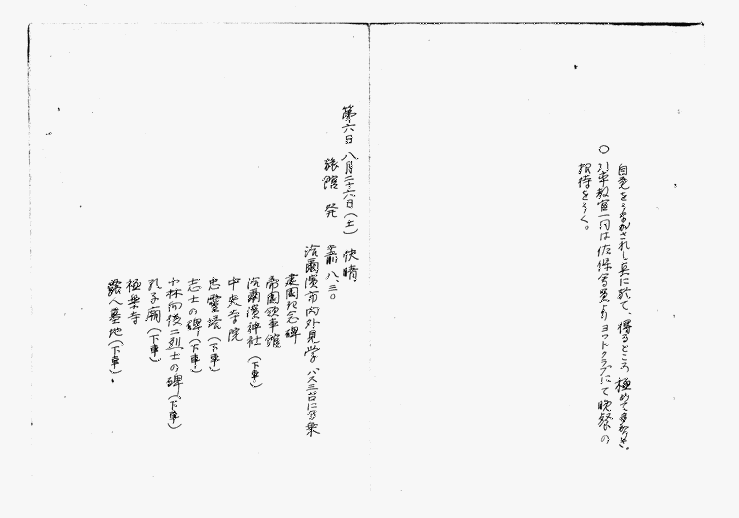 自覚をうながされし点に於て、得るところ極めて多かりき。
○引率教官一同は佐保会員よりヨットクラブにて晩餐の
招待をうく。
第六日 八月二十六日(土) 快晴
旅館 発 前八、三〇
哈爾濱市内外見学 バス三台に分乗
建国記念碑
帝国領事館
哈爾濱神社(下車)
中央寺院
忠霊塔(下車)
志士の碑(下車)
小林向後二烈士の碑(下車)
孔子廟(下車)
極楽寺
露人墓地(下車)